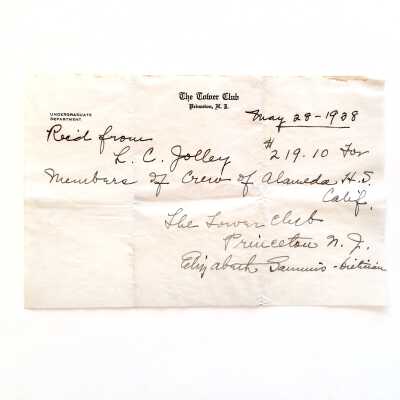 The Tower Club
Princeton, N. J.
UNDERGRADUATE
DEPARTMENT
May 28-1938
Rec'd from
L. C. Jolley $219.10 For
Members of Crew of Alameda H.S.
Calif.
The Tower Club
Princeton N. J.
Elizabeth Sammis - Dietician